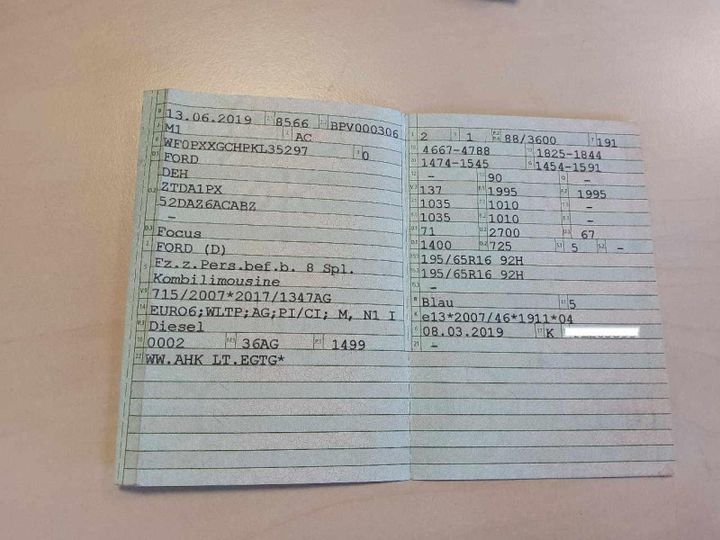 13.06.2019 8566 BPV000306
M1 AC
WF0PXXGCHPKL35297 0
FORD
DEH
ZTDA1PX
52DAZ6ACABZ
–
Focus
FORD (D)
Fz.z.Pers.bef.b. 8 Spl.
Kombilimousine
715/2007*2017/1347AG
EURO6;WLTP;AG;PI/CI; M, N1 I
Diesel
0002 36AG 1499
WW.AHK LT.EGTG*
2 1 88/3600 191
4667-4788 1825-1844
1474-1545 1454-1591
– 90 –
137 1995 1995
1035 1010 –
1035 1010 –
71 2700 67
1400 725 5 –
195/65R16 92H
195/65R16 92H
–
Blau 5
e13*2007/46*1911*04
08.03.2019 K
–